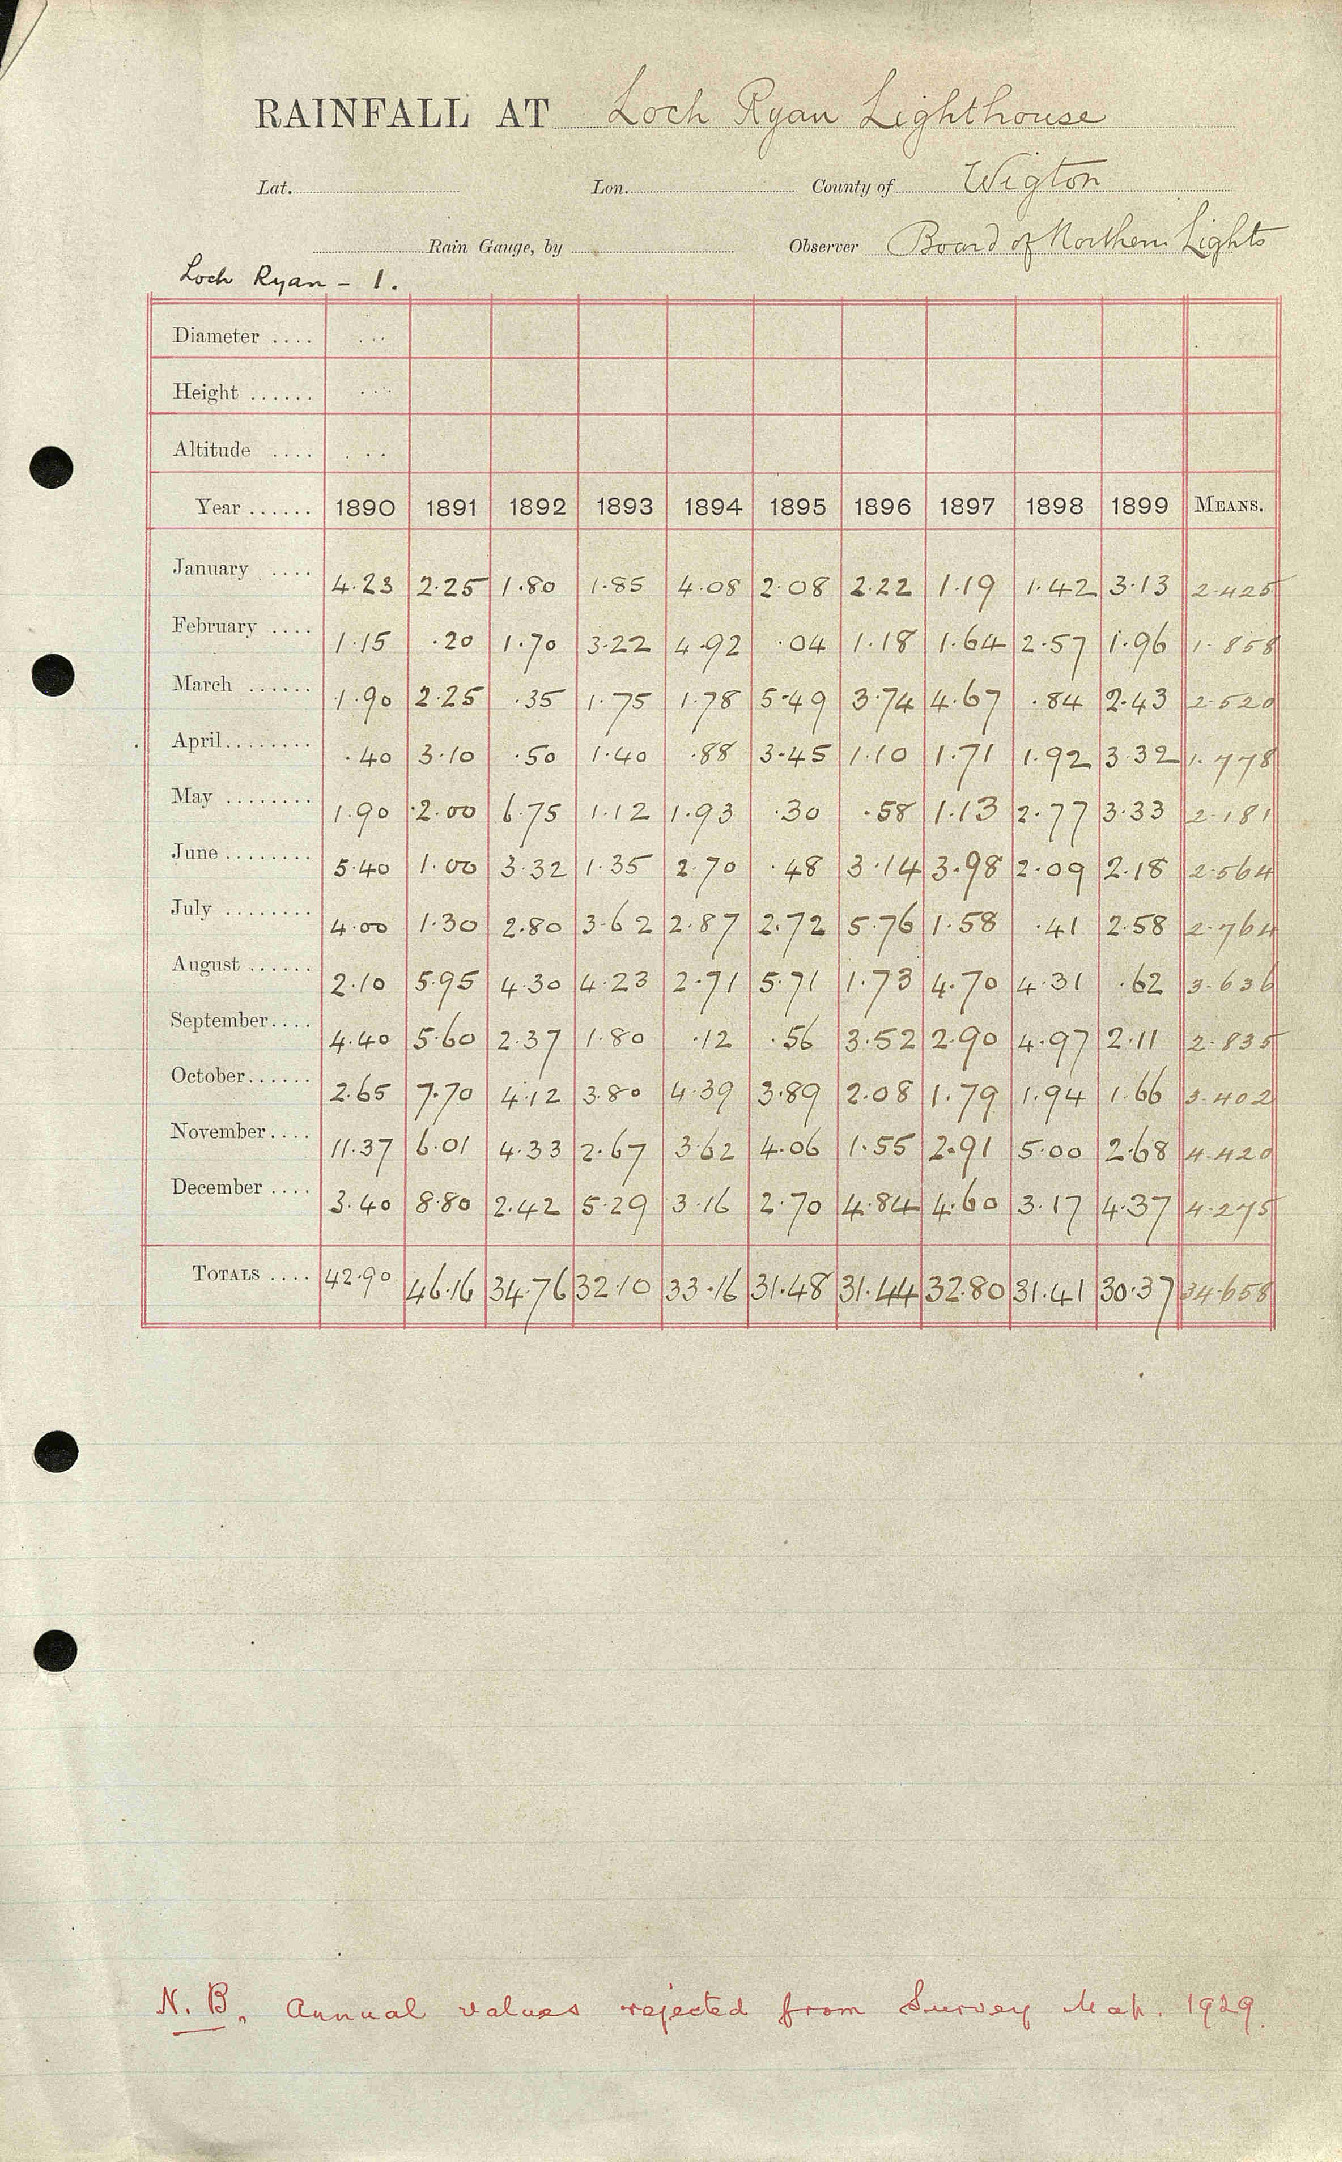 RAINFALL AT Loch Ryan Lighthouse
Lat. Lon. County of Wigton
Rain Gauge, by Observer Board of Northern Lights
Loch Ryan - 1.
Diameter .... ...
Height ...... ...
Altitude .... ...
Year ...... 1890 1891 1892 1893 1894 1895 1896 1897 1898 1899 MEANS.
January .... 4.23 2.25 1.80 1.85 4.08 2.08 2.22 1.19 1.42 3.13 2.425
February .... 1.15 .20 1.70 3.22 4.92 .04 1.18 1.64 2.57 1.96 1.858
March ...... 1.90 2.25 .35 1.75 1.78 5.49 3.74 4.67 .84 2.43 2.520
April ........ .40 3.10 .50 1.40 .88 3.45 1.10 1.71 1.92 3.32 1.778
May ........ 1.90 2.00 6.75 1.12 1.93 .30 .58 1.13 2.77 3.33 2.181
June ........ 5.40 1.00 3.32 1.35 2.70 .48 3.14 3.98 2.09 2.18 2.564
July ........ 4.00 1.30 2.80 3.62 2.87 2.72 5.76 1.58 .41 2.58 2.764
August ...... 2.10 5.95 4.30 4.23 2.71 5.71 1.73 4.70 4.31 .62 3.636
September .... 4.40 5.60 2.37 1.80 .12 .56 3.52 2.90 4.97 2.11 2.835
October ...... 2.65 7.70 4.12 3.80 4.39 3.89 2.08 1.79 1.94 1.66 3.402
November .... 11.37 6.01 4.33 2.67 3.62 4.06 1.55 2.91 5.00 2.68 4.420
December .... 3.40 8.80 2.42 5.29 3.16 2.70 4.84 4.60 3.17 4.37 4.275
TOTALS .... 42.90 46.16 34.76 32.10 33.16 31.48 31.44 32.80 31.41 30.37 34.658
N.B. Annual values rejected from Survey Map. 1929.